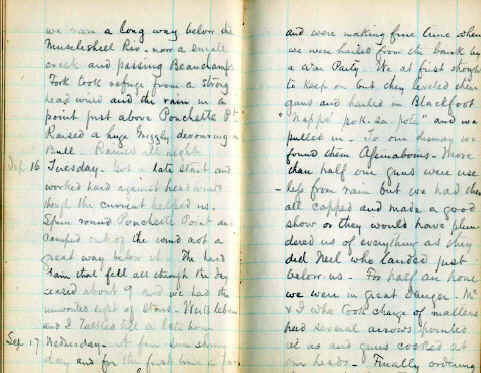 we ran a long way below the
Muscleshell Riv. now a small
creek and passing Beauchamp
Fork took refuge from a strong
head wind and the rain in a
point just above Ponchette Pt
Raised a huge Grizzly devouring a
Bull. Rained all night
Sep. 16 Tuesday. Got a late start and
worked hard against head wind
though the current helped us.
Spun round Ponchette Point and
camped out of the wind not a
great way below it. The hard
rain that fell all through the day
ceased about 9 and we had the
unwonted sight of stars.
and I talked till a late hour
Sep. 17 Wednesday. A fine sun shiny
day and for the first time in
and were making fine time when
we were hailed from the bank by
a War Party. We at first thought
to keep on but they leveled their
guns and hailed in Blackfoot
and we
pulled in. To our dismay we
found them Assinaboins. More
than half our guns were use
less from rain but we had them
all capped and made a good
show or they would have plun
dered us of everything as they
did Neel who landed just
below us. For half an hour
we were in great danger. Mc
& I who took charge of matters
had several arrows pointed
at us and guns cocked at
our heads. Finally ordering